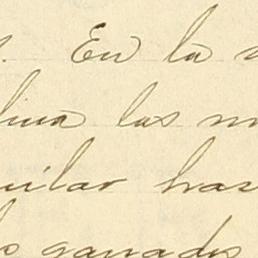 . En la
lina las
uilar has
ganados